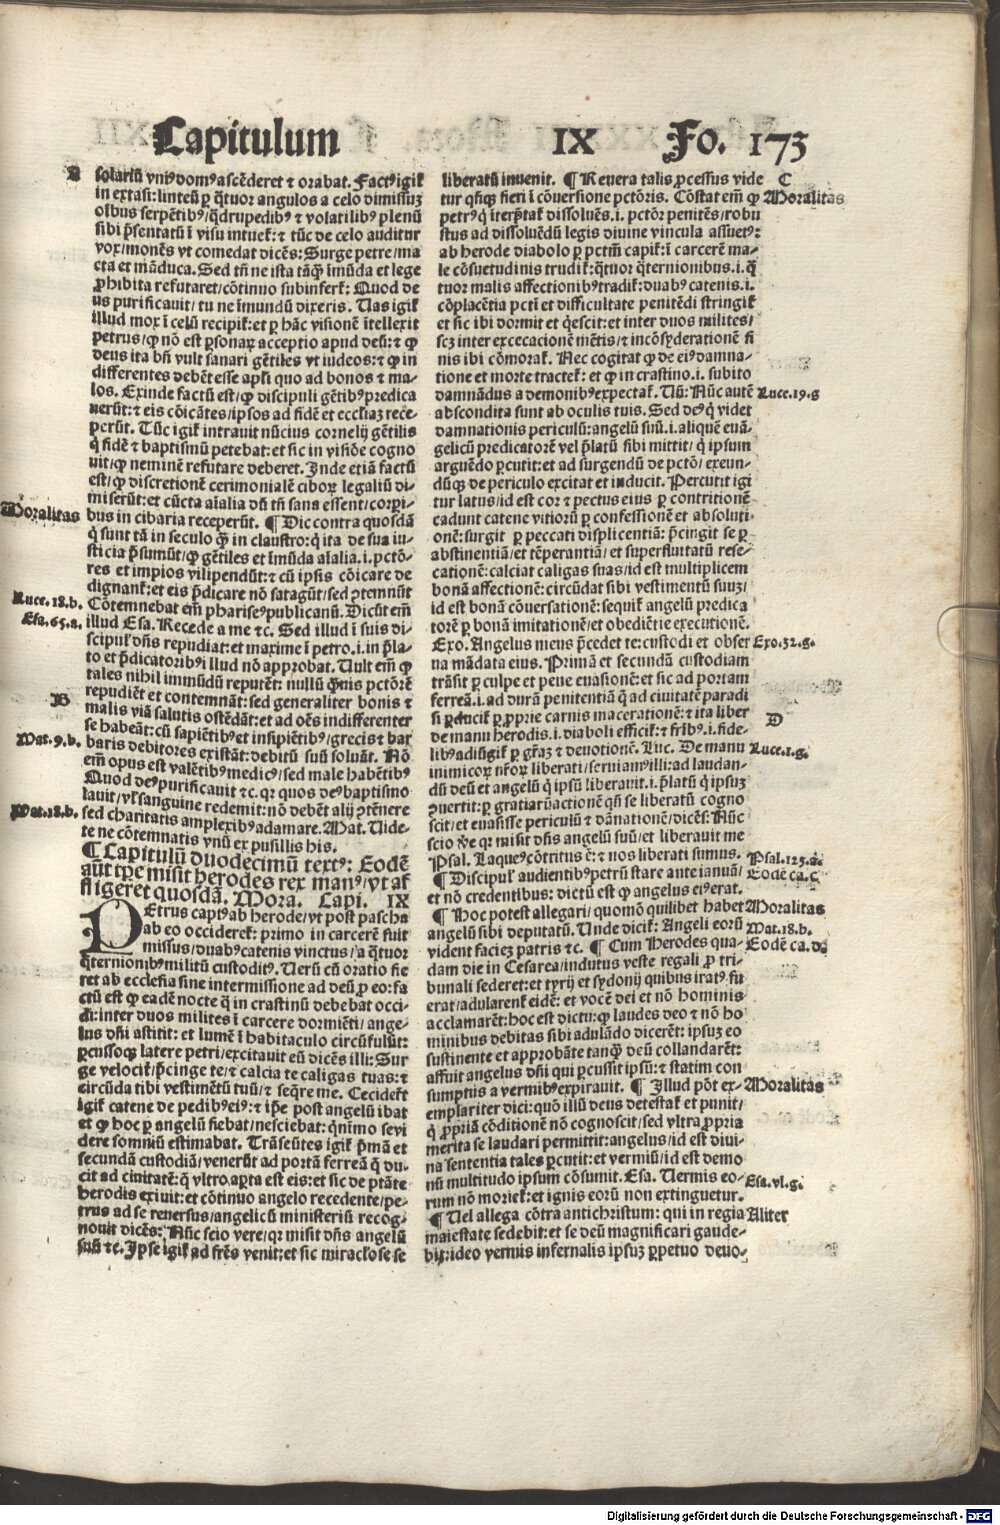 Capitulum IX Fo. 173
A
solariū vniꝰ domꝰ ascēderet ⁊ orabat. Factꝰ igiť
in extasi: linteū ꝑ q̄tuor angulos a celo dimissuꝫ
oībus serpētibꝰ/q̄drupedibꝰ ⁊ volatilibꝰ plenū
sibi p̄sentatū ī visu intueť: ⁊ tūc de celo auditur
vox/monēs vt comedat dicēs: Surge petre/ma
cta et māduca. Sed tn̄ ne ista tāq̄ īmūda et lege
ꝓhibita refutaret/cōtinuo subinferť: Quod de
us purificauit/tu ne īmundū dixeris. Uas igiť
illud mox ī celū recipiť: et ꝑ hāc visionē ītellexit
petrus/ꝙ nō est ꝑsonaꝝ acceptio apud deū: ⁊ ꝙ
deus ita bn̄ vult sanari gētiles vt iudeos: ⁊ ꝙ in
differentes debēt esse apl̄i quo ad bonos ⁊ ma-
los. Exinde factū est/ꝙ discipuli gētibꝰ predica
uerūt: ⁊ eis cōicātes/ipsos ad fidē et eccl̄iaꝫ rece-
perūt. Tūc igiť intrauit nūcius cornelij gētilis
q̄ fidē ⁊ baptismū petebat: et sic in visiōe cogno
uit/ꝙ neminē refutare deberet. Inde etiā factū
est/ꝙ discretionē cerimonialē ciboꝝ legaliū di-
miserūt: et cūcta aīalia dū tn̄ sana essent/corꝑi-
Moralitas
bus in cibaria receperūt. ¶ Dic contra quosdā
q̄ sunt tā in seculo q̄ in claustro: q̄ ita de sua iu-
sticia p̄sumūt/ꝙ gētiles et īmūda aīalia .i. pctō-
res et impios vilipendūt: ⁊ cū ipsis cōicare de
dignanť: et eis p̄dicare nō satagūt/sed ꝯtemnūt
Luce. 18. b.
Cōtemnebat em̄ phariseꝰ publicanū. Dicūt em̄
Esa. 65. a.
illud Esa. Recede a me ⁊c. Sed illud ī suis di-
scipul' dn̄s repudiat: et maxime ī petro .i. in p̄la-
to et p̄dicatoribꝰ illud nō approbat. Uult em̄ ꝙ
tales nihil immūdū reputēt: nullū q̄nis pctōrē
B
repudiēt et contemnāt: sed generaliter bonis ⁊
malis viā salutis ostēdāt: et ad oēs indifferenter
se habeāt: cū sapiētibꝰ et insipiētibꝰ/grecis ⁊ bar
Mat. 9. b.
baris debitores existāt: debitū suū soluāt. Nō
em̄ opus est valētibꝰ medicꝰ/sed male habētibꝰ
Quod deꝰ purificauit ⁊c. qꝛ quos deꝰ baptismo
lauit/vl' sanguine redemit: nō debēt alij ꝯtēnere
Mat. 18. b.
sed charitatis amplexibꝰ adamare. Mat. Uide-
te ne cōtemnatis vnū ex pusillis his.
¶ Capitulū duodecimū textꝰ: Eodē
aūt tꝑe misit herodes rex manꝰ/vt af
fligeret quosdā. Mora. Capi. IX
PEtrus captꝰ ab herode/vt post pascha
ab eo occidereť: primo in carcerē fuit
missus/duabꝰ catenis vinctus/a q̄tuor
q̄ternionibꝰ militū custoditꝰ. Uerū cū oratio fie
ret ab ecclesia sine intermissione ad deū ꝓ eo: fa
ctū est ꝙ eadē nocte q̄ in crastinū debebat occi
di: inter duos milites ī carcere dormiēti/ange-
lus dn̄i astitit: et lumē ī habitaculo circūfulsit:
ꝑcussoqꝫ latere petri/excitauit eū dicēs illi: Sur
ge velociť/p̄cinge te/⁊ calcia te caligas tuas: ⁊
circūda tibi vestimētū tuū/ ⁊ seq̄re me. Cecideřt
igiť catene de pedibꝰ eiꝰ: ⁊ ip̄e post angelū ibat
et ꝙ hoc ꝑ angelū fiebat/nesciebat: q̄nimo se vi
dere somniū estimabat. Trāseūtes igiť p̄mā et
secundā custodiā/venerūt ad portā ferreā q̄ du-
cit ad ciuitatē: q̄ vltro aꝑta est eis: et sic de ptāte
herodis exiuit: et cōtinuo angelo recedente/pe-
trus ad se reuersus/angelicū ministeriū recog-
nouit dicēs: Nūc scio vere/qꝛ misit dn̄s angelū
suū ⁊c. Ipse igiť ad fr̄es venit: et sic miraclose se
liberatū inuenit. ¶ Reuera talis ꝓcessus vide
C
tur qn̄qꝫ fieri ī cōuersione pctōris. Cōstat em̄ ꝙ
Moralitas
petrꝰ q̄ iterp̄tať dissoluēs .i. pctōr penitēs/robu
stus ad dissoluēdū legis diuine vincula assuetꝰ:
ab herode diabolo ꝑ pctm̄ capiť: ī carcerē ma-
le cōsuetudinis trudiť: q̄tuor q̄ternionibus .i. q̄
tuor malis affectionibꝰ tradiť: duabꝰ catenis .i.
cōplacētia pctī et difficultate penitēdi stringiť
et sic ibi dormit et q̄escit: et inter duos milites/
scꝫ inter excecacionē mētis/⁊ incōsyderationē fi
nis ibi cōmorať. Nec cogitat ꝙ de eiꝰ damna-
tione et morte tracteť: et ꝙ in crastino .i. subito
damnādus a demonibꝰ expectať. Uñ: Nūc autē
Luce. 19. g
abscondita sunt ab oculis tuis. Sed deꝰ q̄ videt
damnationis periculū: angelū suū .i. aliquē euā-
gelicū predicatorē vel p̄latū sibi mittit/ q̄ ipsum
arguēdo ꝑcutit: et ad surgendū de pctō/ exeun-
dūqꝫ de periculo excitat et inducit. Percutit igi
tur latus/id est cor ⁊ pectus eius ꝑ contritionē
cadunt catene vitiorū ꝑ confessionē et absoluti-
onē: surgit ꝑ peccati displicentiā: p̄cingit se ꝑ
abstinentiā/ et tēperantiā/ et superfluitatū rese-
cationē: calciat caligas suas/id est multiplicem
bonā affectionē: circūdat sibi vestimentū suuꝫ/
id est bonā cōuersationē: sequiť angelū predica
torē ꝑ bonā imitationē/et obediētie executionē.
Exo. Angelus meus p̄cedet te: custodi et obser
Exo. 32. g.
ua mādata eius. Primā et secundā custodiam
trāsit ꝑ culpe et pene euasionē: et sic ad portam
ferreā .i. ad durā penitentiā q̄ ad ciuitatē paradi
si ꝑduciť ꝑ ꝓprie carnis macerationē: ⁊ ita liber
D
de manu herodis .i. diaboli efficiť: ⁊ fr̄ibꝰ .i. fide-
libꝰ adiūgiť ꝑ gr̄aꝫ ⁊ deuotionē. Luc. De manu
Luce. 1. g.
inimicoꝝ nr̄oꝝ liberati/seruiamꝰ illi: ad laudan-
dū deū et angelū q̄ ipsū liberauit .i. p̄latū q̄ ipsuꝫ
ꝯuertit: ꝑ gratiarū actionē qn̄ se liberatū cogno
scit/et euasisse periculū ⁊ dānationē/dicēs: Nūc
scio v̄e qꝛ misit dn̄s angelū suū/et liberauit me
Psal. Laqueꝰ cōtritus ē: ⁊ nos liberati sumus.
Psal. 123. a.
¶ Discipul' audientibꝰ petrū stare ante ianuā/
Eodē ca. c
et nō credentibus: dictū est ꝙ angelus eiꝰ erat.
¶ Hoc potest allegari/quomō quilibet habet
Moralitas
angelū sibi deputatū. Unde diciť: Angeli eorū
Mat. 18. b.
vident facieꝫ patris ⁊c. ¶ Cum Herodes qua-
Eodē ca. d.
dam die in Cesarea/indutus veste regali ꝓ tri-
bunali sederet: et tyrij et sydonij quibus iratꝰ fu
erat/adularenť eidē: et vocē dei et nō hominis
acclamarēt: hoc est dictu: ꝙ laudes deo ⁊ nō ho
minibus debitas sibi adulādo dicerēt: ipsuꝫ eo
sustinente et approbāte tanq̄ deū collandarēt:
affuit angelus dn̄i qui ꝑcussit ipsū: ⁊ statim con
sumptus a vermibꝰ expirauit. ¶ Illud pōt ex-
Moralitas
emplariter dici: quō illū deus detestať et punit/
q̄ ꝓpriā cōditionē nō cognoscit/sed vltra ꝓpria
merita se laudari permittit: angelus/id est diui-
na sententia tales ꝑcutit: et vermiū/id est demo
nū multitudo ipsum cōsumit. Esa. Uermis eo-
Esa. vl. g.
rum nō morieť: et ignis eorū non extinguetur.
¶ Uel allega cōtra antichristum: qui in regia
Aliter
maiestate sedebit: et se deū magnificari gaude-
bit: ideo vermis infernalis ipsuꝫ ꝑpetuo deuo-
Digitalisierung gefördert durch die Deutsche Forschungsgemeinschaft - DFG